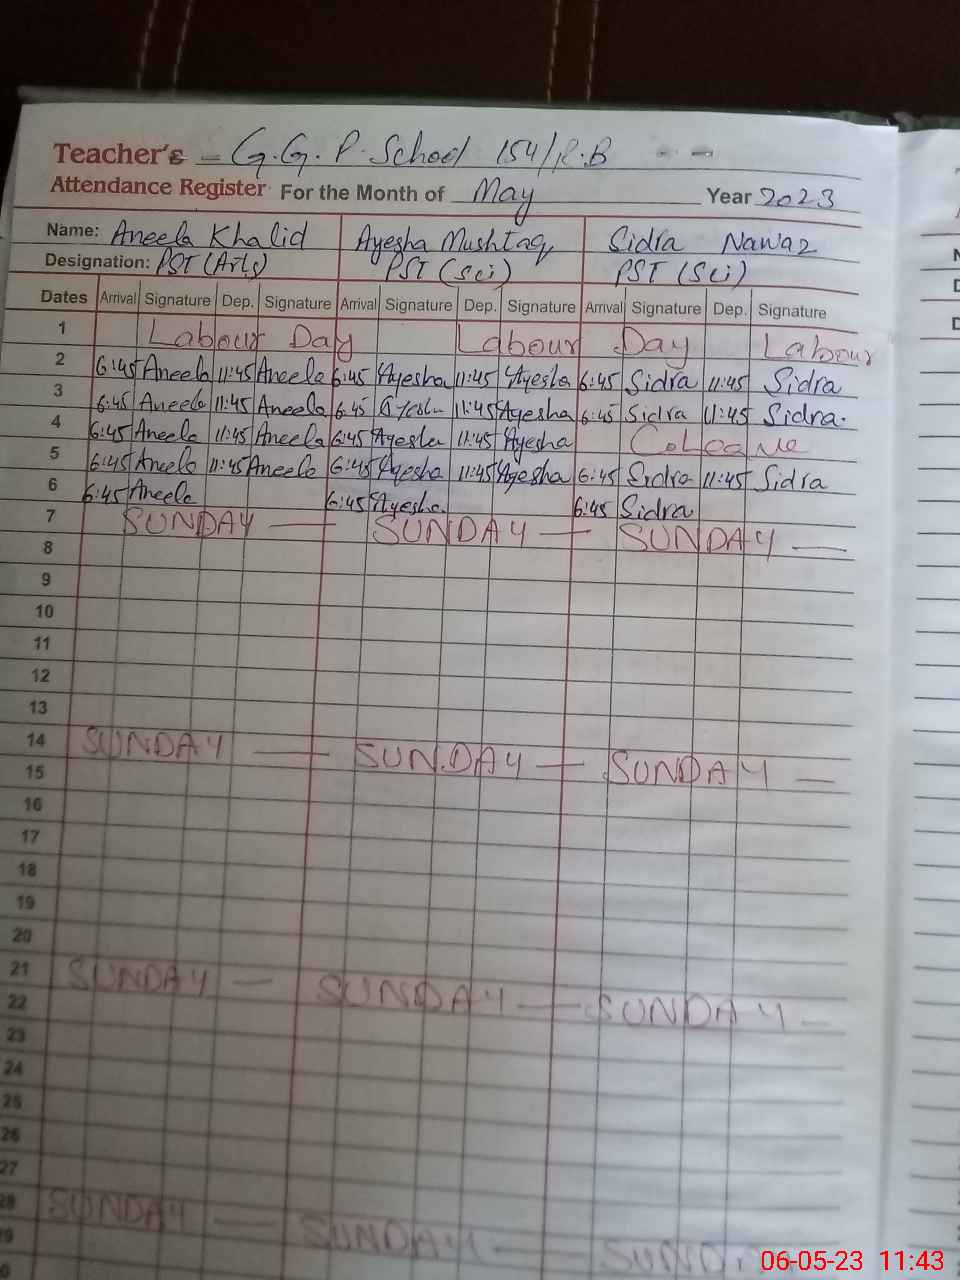 Teacher's - G.G.P. School 154/R.B - -
Attendance Register For the Month of May Year 2023
Name: Aneela Khalid Ayesha Mushtaq Sidra Nawaz
Designation: PST (Arts) PST (Sci) PST (Sci)
Dates Arrival Signature Dep. Signature Arrival Signature Dep. Signature Arrival Signature Dep. Signature
1 Labour Day Labour Day Labour
2 6:45 Aneela 11:45 Aneela 6:45 Ayesha 11:45 Ayesha 6:45 Sidra 11:45 Sidra
3 6:45 Aneela 11:45 Aneela 6:45 Ayesha 11:45 Ayesha 6:45 Sidra 11:45 Sidra.
4 6:45 Aneela 11:45 Aneela 6:45 Ayesha 11:45 Ayesha
5 6:45 Aneela 11:45 Aneela 6:45 Ayesha 11:45 Ayesha 6:45 Sidra 11:45 Sidra
6 6:45 Aneela 6:45 Ayesha 6:45 Sidra
7 SUNDAY — SUNDAY — SUNDAY —
8
9
10
11
12
13
14 SUNDAY — SUNDAY — SUNDAY —
15
16
17
18
19
20
21 SUNDAY — SUNDAY — SUNDAY —
22
23
24
25
26
27
28 SUNDAY — SUNDAY — SUNDAY
06-05-23 11:43